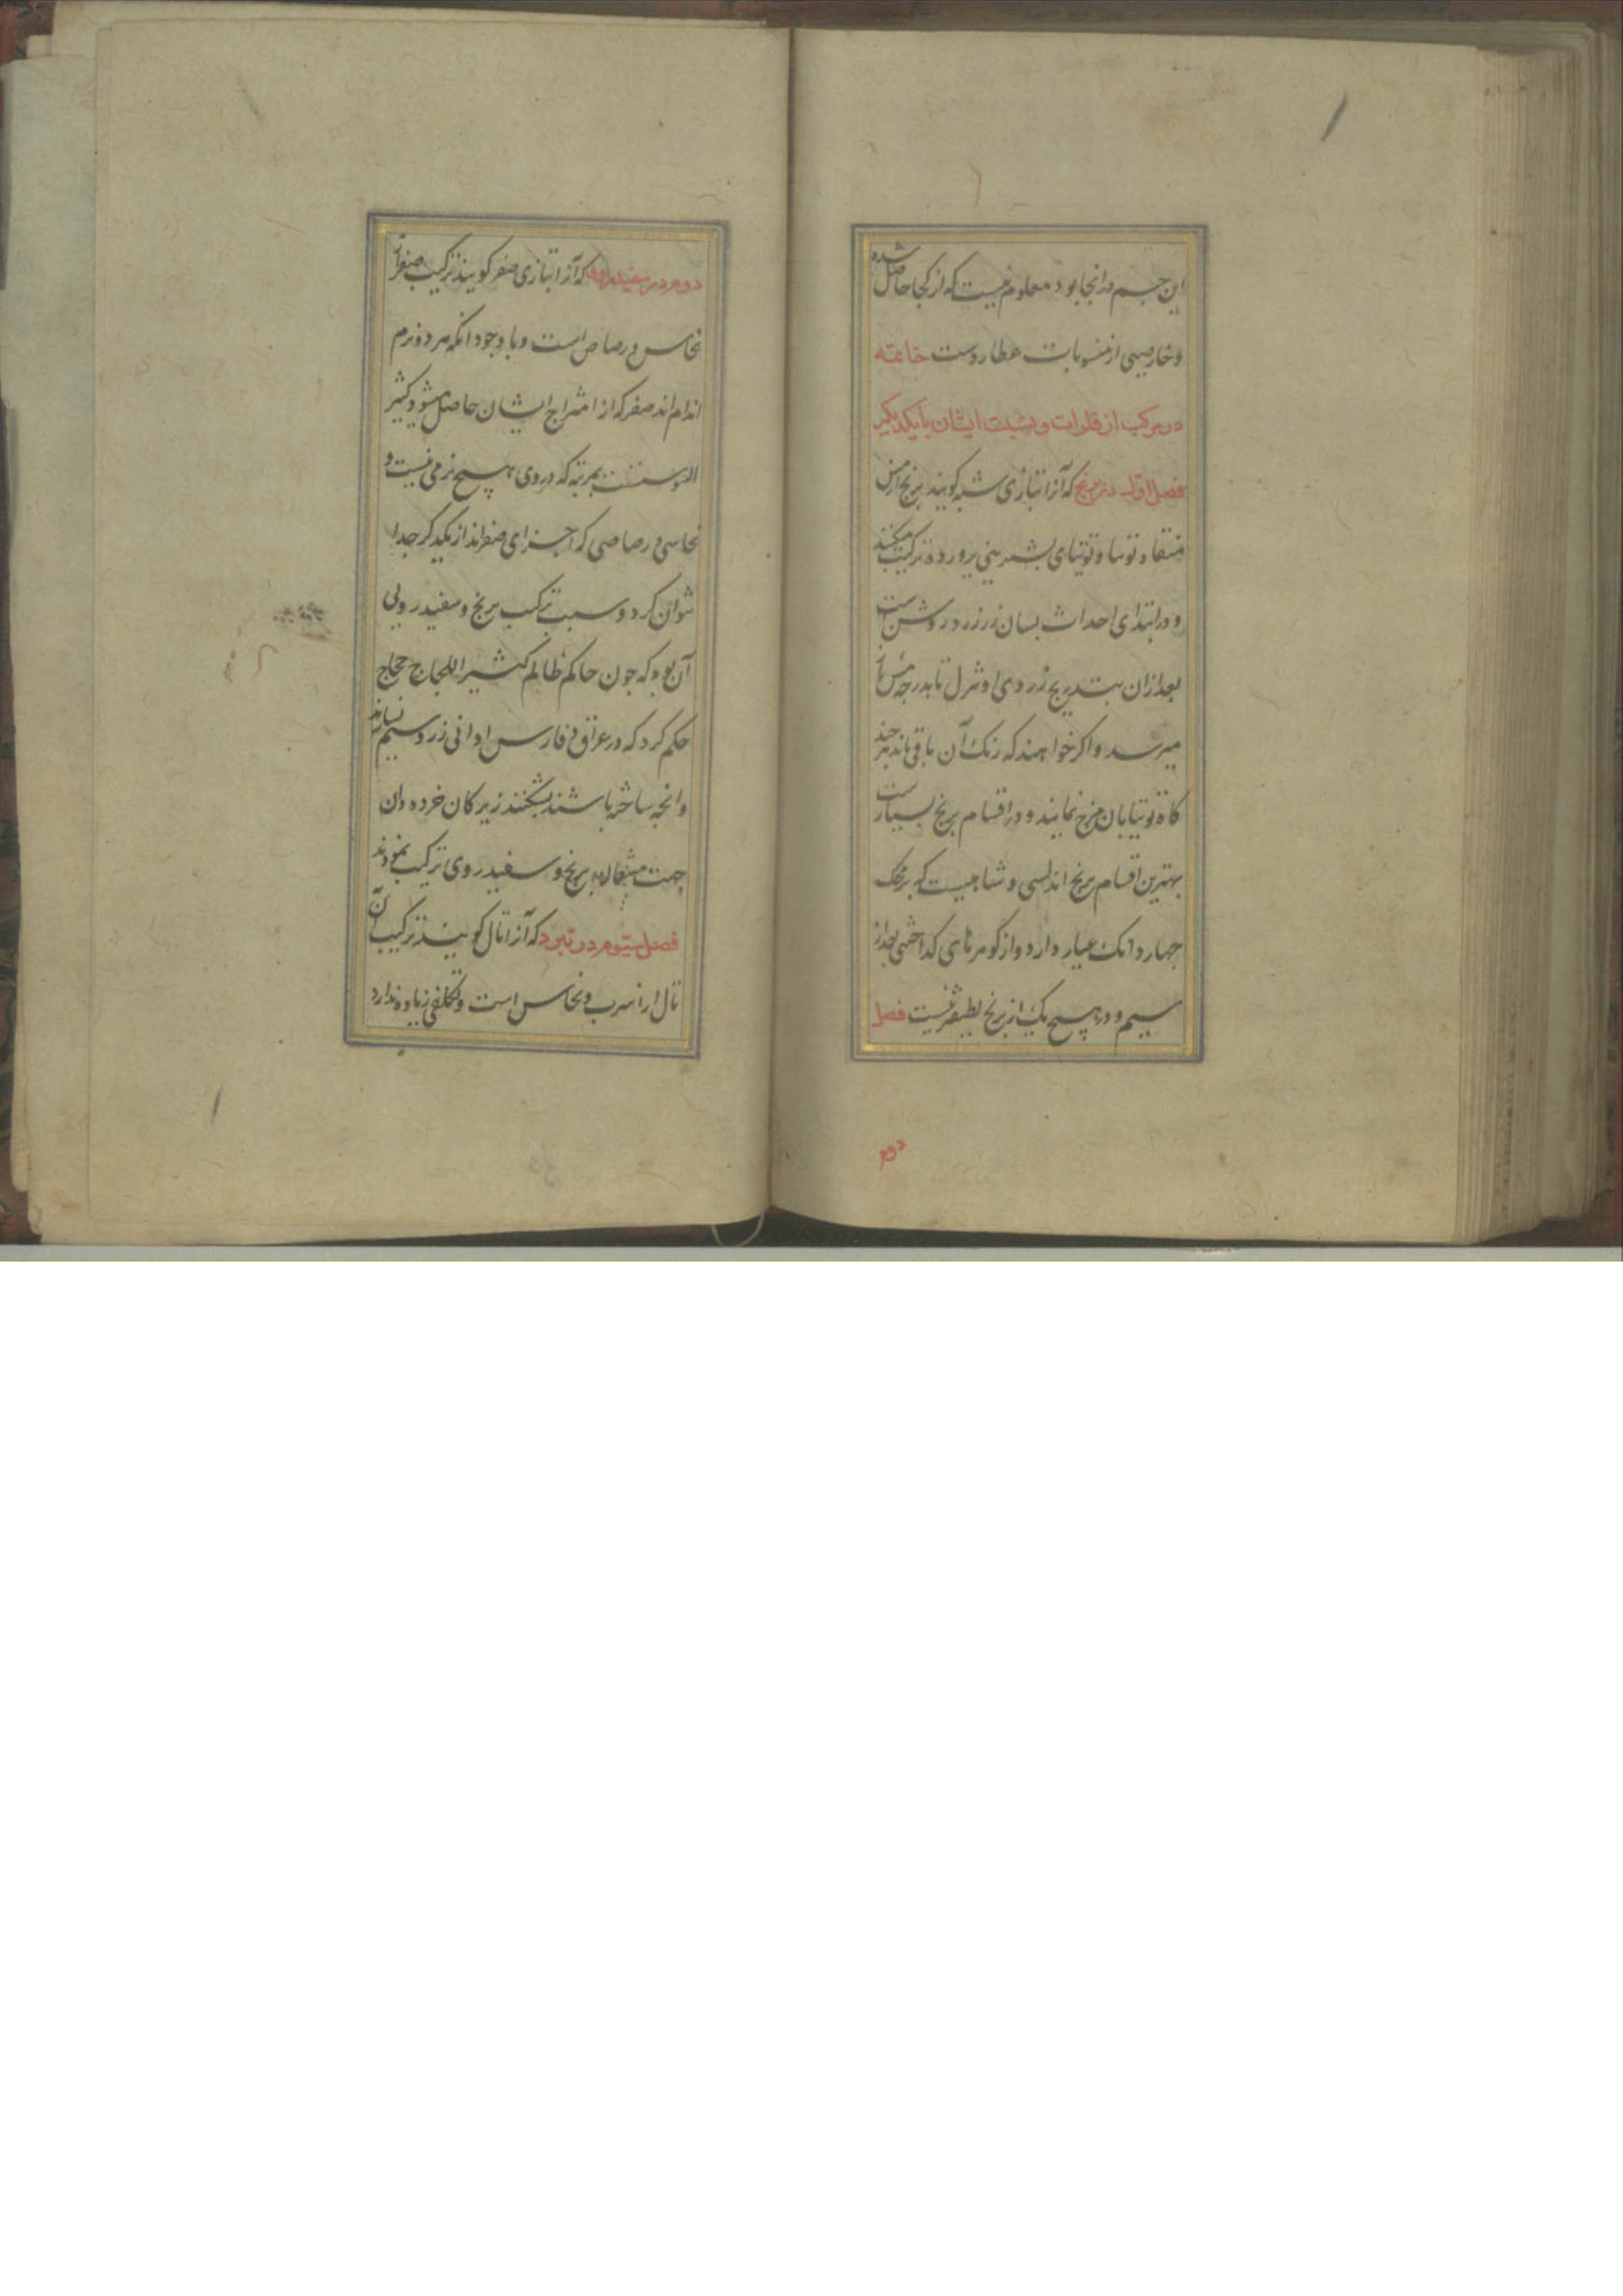 این جسم در انجا بود معلوم نیست که از کجا حاصل شده
و خارصینی از منسوبات عطاردست خاتمه
در مرکب از فلزات و نسبت ایشان با یکدیگر
فصل اول در برنج که آنرا بتازی شبه کویند برنج از مس
منقا و توتیا و توتیای بشیرینی پرورده ترکیب میکنند
و در ابتدای احداث بسان زر زرد روشن است
بعد ازان بتدریج زردی او تنزل تا بدرجه مس
میرسد و اکر خواهند که رنک آن باقی ماند هر چند
کاه توتیا بان مزج نمایند و در اقسام برنج بسیارست
بهترین اقسام برنج اندلسی و شاهیست که بر محک
چهار دانک عیار دارد و از کوهرهای کداختنی بعد از
سیم و در هیچ یک از برنج لطیفتر نیست فصل
دوم
دوم در سفیدروی که آنرا بتازی صفر کویند ترکیب صفر از
نحاس و رصاص است و با وجود انکه هر دو نرم
اندام اند صفر که از امتزاج ایشان حاصل میشود کثیر
الیبوستست بمرتبه که در وی هیچ نرمی نیست و
نحاسی و رصاصی که اجزای صفراند از یکدیکر جدا
نتوان کرد و سبب ترکیب برنج و سفیدرویی
آن بود که چون حاکم ظالم کثیر اللجاج حجاج
حکم کرد که در عراق و فارس اوانی زر و سیم نسازند
وانچه ساخته باشند بشکنند زیرکان خرده دان
جهت برنج و سفیدروی ترکیب نمودند
فصل سیوم در که آنرا تال کویند ترکیب آن
تال از اسرب و نحاس است و تکلفی زیاده ندارد